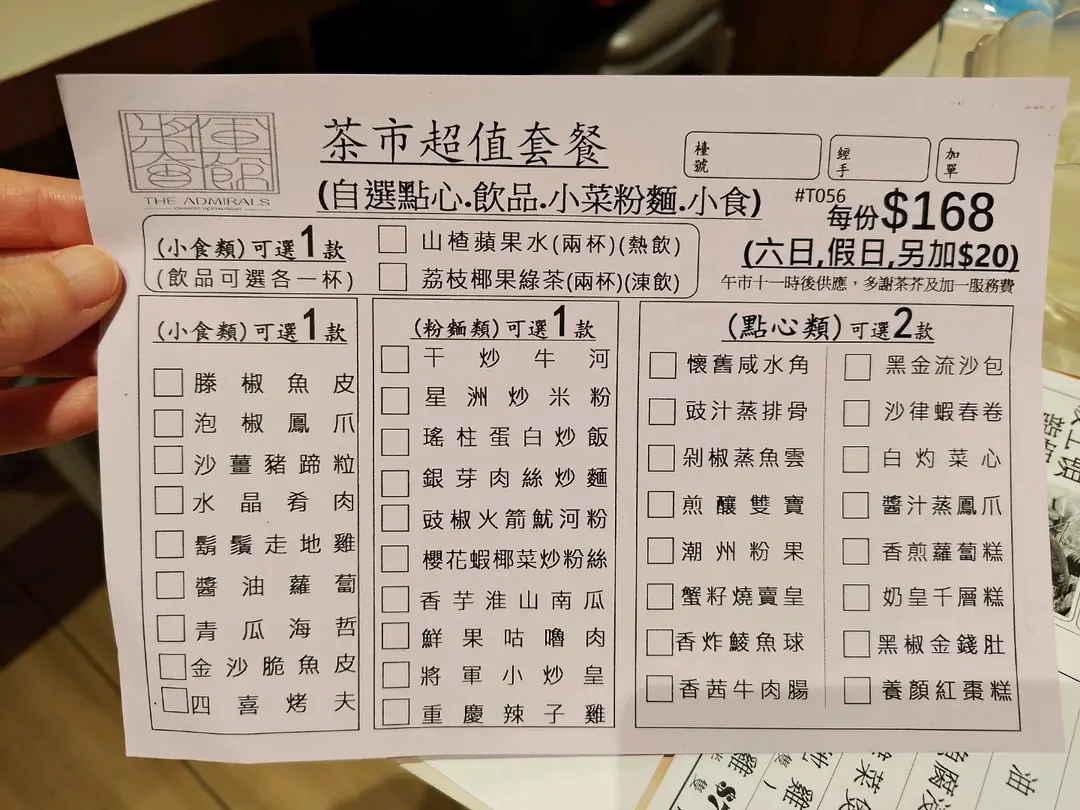 將軍會館
THE ADMIRALS
CHINESE RESTAURANT
茶市超值套餐
(自選點心.飲品.小菜粉麵.小食)
檯號
經手
加單
#T056
每份$168
(六日,假日,另加$20)
午市十一時後供應，多謝茶芥及加一服務費
(小食類)可選1款
(飲品可選各一杯)
山楂蘋果水(兩杯)(熱飲)
荔枝椰果綠茶(兩杯)(凍飲)
(小食類)可選1款
滕椒魚皮
泡椒鳳爪
沙薑豬蹄粒
水晶肴肉
鬍鬚走地雞
醬油蘿蔔
青瓜海哲
金沙脆魚皮
四喜烤夫
(粉麵類)可選1款
干炒牛河
星洲炒米粉
瑤柱蛋白炒飯
銀芽肉絲炒麵
豉椒火箭魷河粉
櫻花蝦椰菜炒粉絲
香芋淮山南瓜
鮮果咕嚕肉
將軍小炒皇
重慶辣子雞
(點心類)可選2款
懷舊咸水角
豉汁蒸排骨
剁椒蒸魚雲
煎釀雙寶
潮州粉果
蟹籽燒賣皇
香炸鯪魚球
香茜牛肉腸
黑金流沙包
沙律蝦春卷
白灼菜心
醬汁蒸鳳爪
香煎蘿蔔糕
奶皇千層糕
黑椒金錢肚
養顏紅棗糕